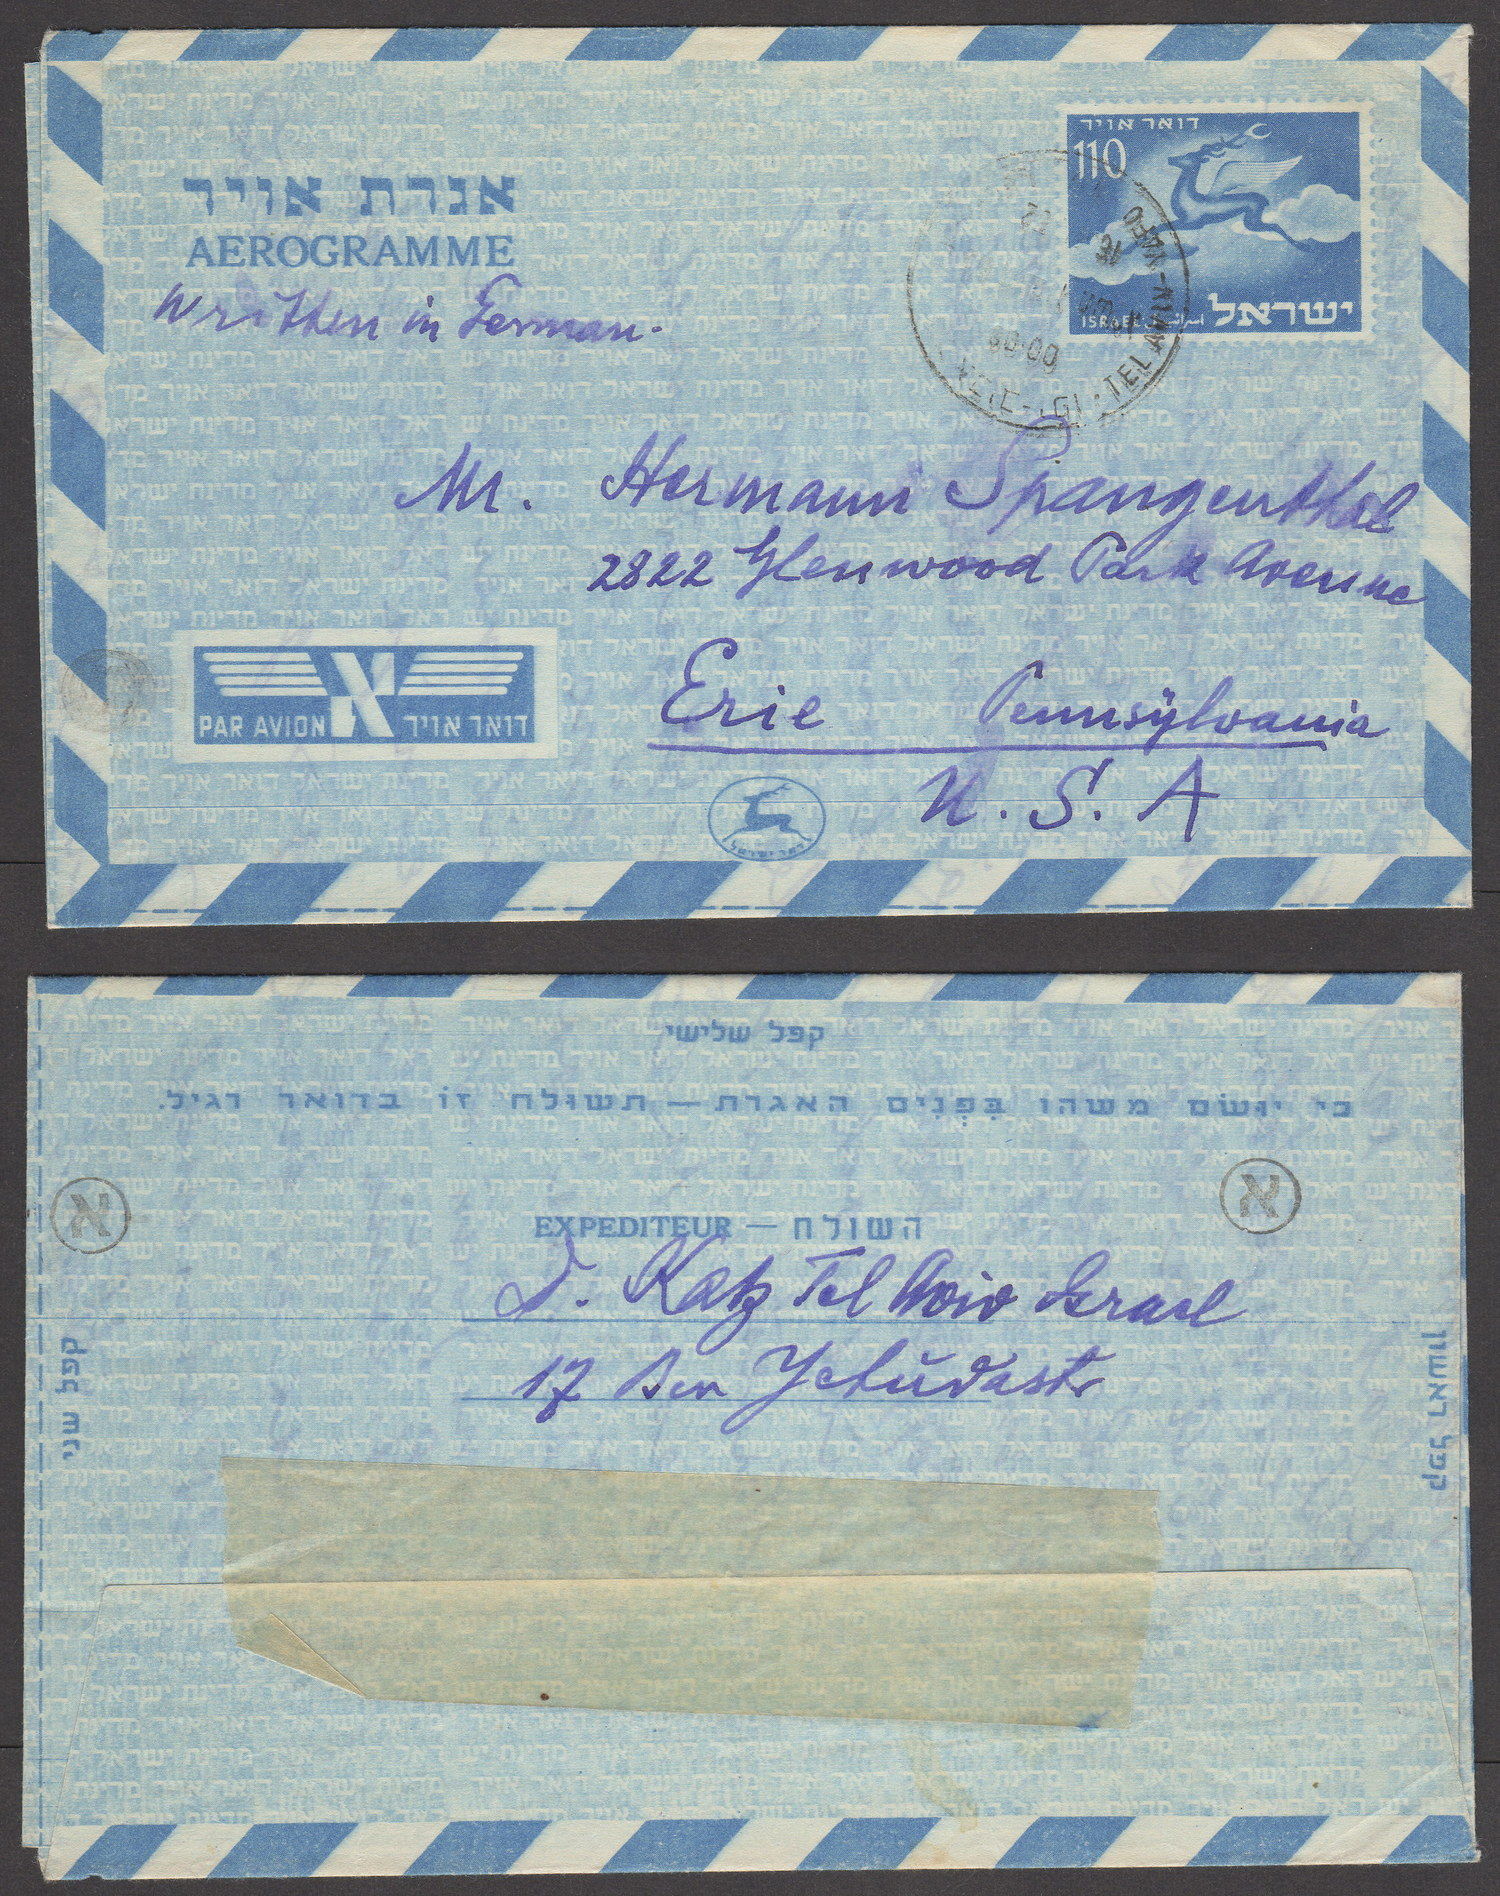 אגרת אויר
AEROGRAMME
Written in German.
דואר אויר
110
ISRAEL اسرائيل ישראל
TEL AVIV-YAFO
Mr. Hermann Spangenthal
2822 Glenwood Park Avenue
Erie Pennsylvania
U.S.A
PAR AVION א דואר אויר
דואר ישראל
קפל שלישי
כי יושם משהו בפנים האגרת – תשולח זו בדואר רגיל.
א
א
EXPEDITEUR – השולח
D. Katz Tel Aviv Israel
17 Ben Jehudastr
קפל שני
קפל ראשון